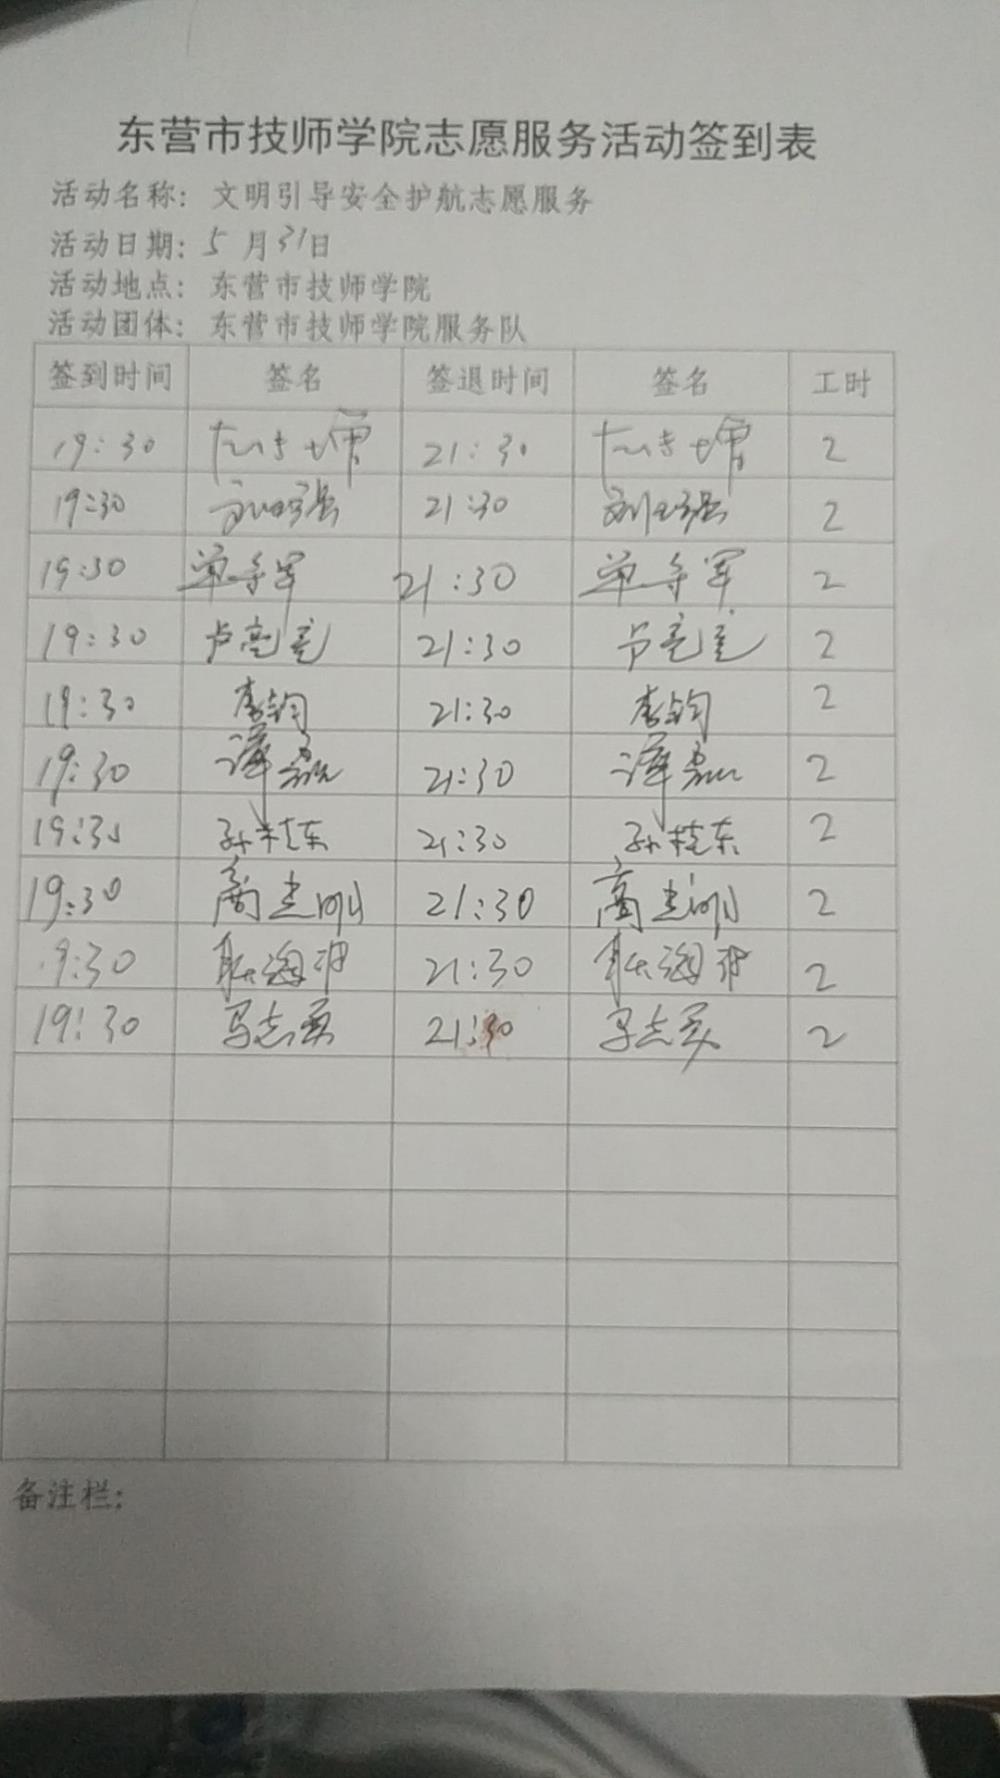 东营市技师学院志愿服务活动签到表
活动名称：文明引导安全护航志愿服务
活动日期：5月31日
活动地点：东营市技师学院
活动团体：东营市技师学院服务队
签到时间 签名 签退时间 签名 工时
19:30 21:30 2
19:30 21:30 2
19:30 单 军 21:30 单 军 2
19:30 卢亮亮 21:30 卢亮亮 2
19:30 李钧 21:30 李钧 2
19:30 谭磊 21:30 谭磊 2
19:30 孙桂东 21:30 孙桂东 2
19:30 21:30 2
9:30 耿海波 21:30 耿海波 2
19:30 马志英 21:30 马志英 2
备注栏：